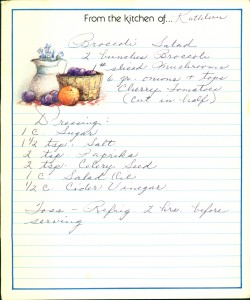 From the kitchen of... Kathleen
Broccoli Salad
2 bunches Broccoli
1# sliced mushrooms
6 gr. onions & tops
Cherry Tomatoes
(cut in half)
Dressing:
1 C. Sugar
1 1/2 tsp. Salt
2 tsp Paprika
2 tsp Celery Seed
1 C Salad Oil
1/2 C. Cider Vinegar
Toss - Refrig 2 hrs before
serving